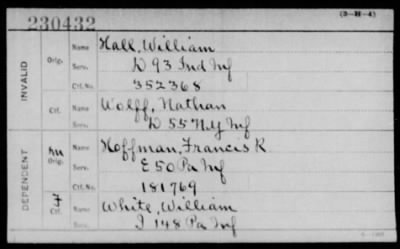 230432 (3-H-4)
INVALID
Orig. Name Hall, William
Serv. D 93 Ind Inf
Ctf. No. 352368
Ctf. Name Wolff, Nathan
Serv. D 55 N.Y Inf
DEPENDENT
Orig. Name Hoffman, Francis R
Serv. E 50 Pa Inf
Ctf. No. 181769
Ctf. Name White, William
Serv. I 148 Pa Inf